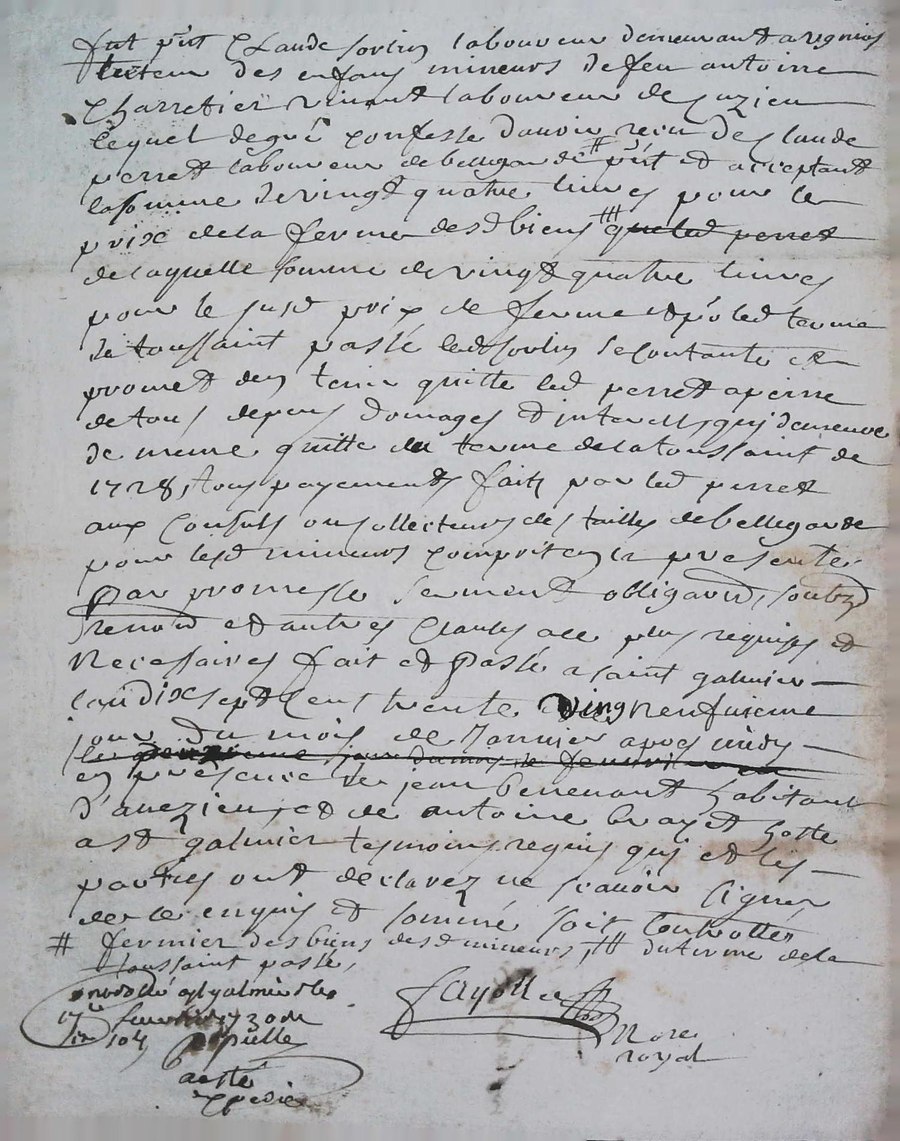 fut pnt Claude Soviin laboureur demeurant a
tuteur des enfans mineurs de feu antoine
Charretier vivant laboureur de Cuzieu
lequel de gré confesse d'avoir reçu de Claude
perret laboureur de bellegarde # pnt et acceptant
la somme de vingt quatre livres pour le
prix de la ferme desd biens ## que led perret
de laquelle somme de vingt quatre livres
pour le susd prix de ferme et po led terme
de toussaint passé led se contante et
promet den tenir quitte led perret a peine
de tous depens domages et interests, qui demeure
de meme quitte du terme de la toussaint de
1728, tous payements faits par led perret
aux Consuls ou collecteurs des tailles de bellegarde
pour lesd mineurs compris en ces presentes
Par promesse serment obligaons, soubzm
renons et autres Clauses a ce plus requises et
Necessaires fait et Passé a saint galmier
lan dix sept cent trente vingt neufvieme
jour du mois de Janvier apres midy
le jour du mois de fevrier
en presence de jean habitant
d'avezieu, et de antoine hoste
a st galmier tesmoins requis qui et les
parties ont declarez ne scavoir signer
de ce enquis et sommé soit Controllé,
# fermier des biens desd mineurs, ## du terme de la
toussaint passé,
Controllé a st galmier le
17e fevrier 1730
acte
expedié
fayolle
No.re
royal